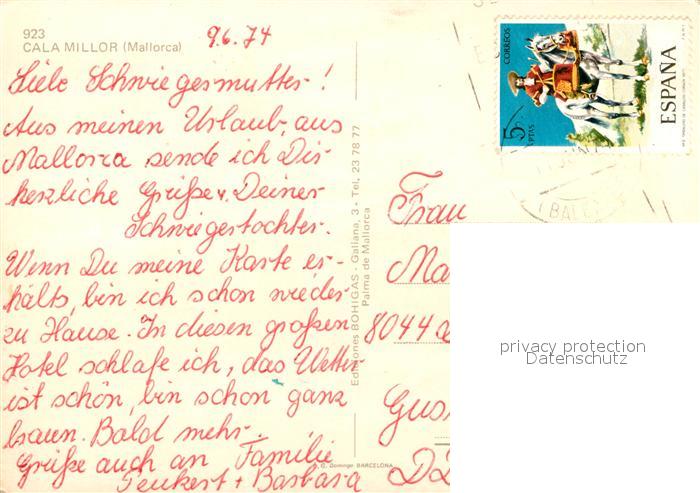 923
CALA MILLOR (Mallorca)
9.6.74
Liebe Schwiegermutter!
Aus meinen Urlaub, aus
Mallorca sende ich Dir
herzliche Grüße v. Deiner
Schwiegertochter.
Wenn Du meine Karte er-
hälts, bin ich schon wieder
zu Hause. In diesen großen
Hotel schlafe ich, das Wetter
ist schön, bin schon ganz
braun. Bald mehr.
Grüße auch an Familie
Peukert + Barbara
Ediciones BOHIGAS - Galiana, 3 - Tel. 23 78 77
Palma de Mallorca
A. G. Domingo BARCELONA
CORREOS
5
PTAS
ESPAÑA
(BALE
Frau
Ma
8044
Gus
privacy protection
Datenschutz